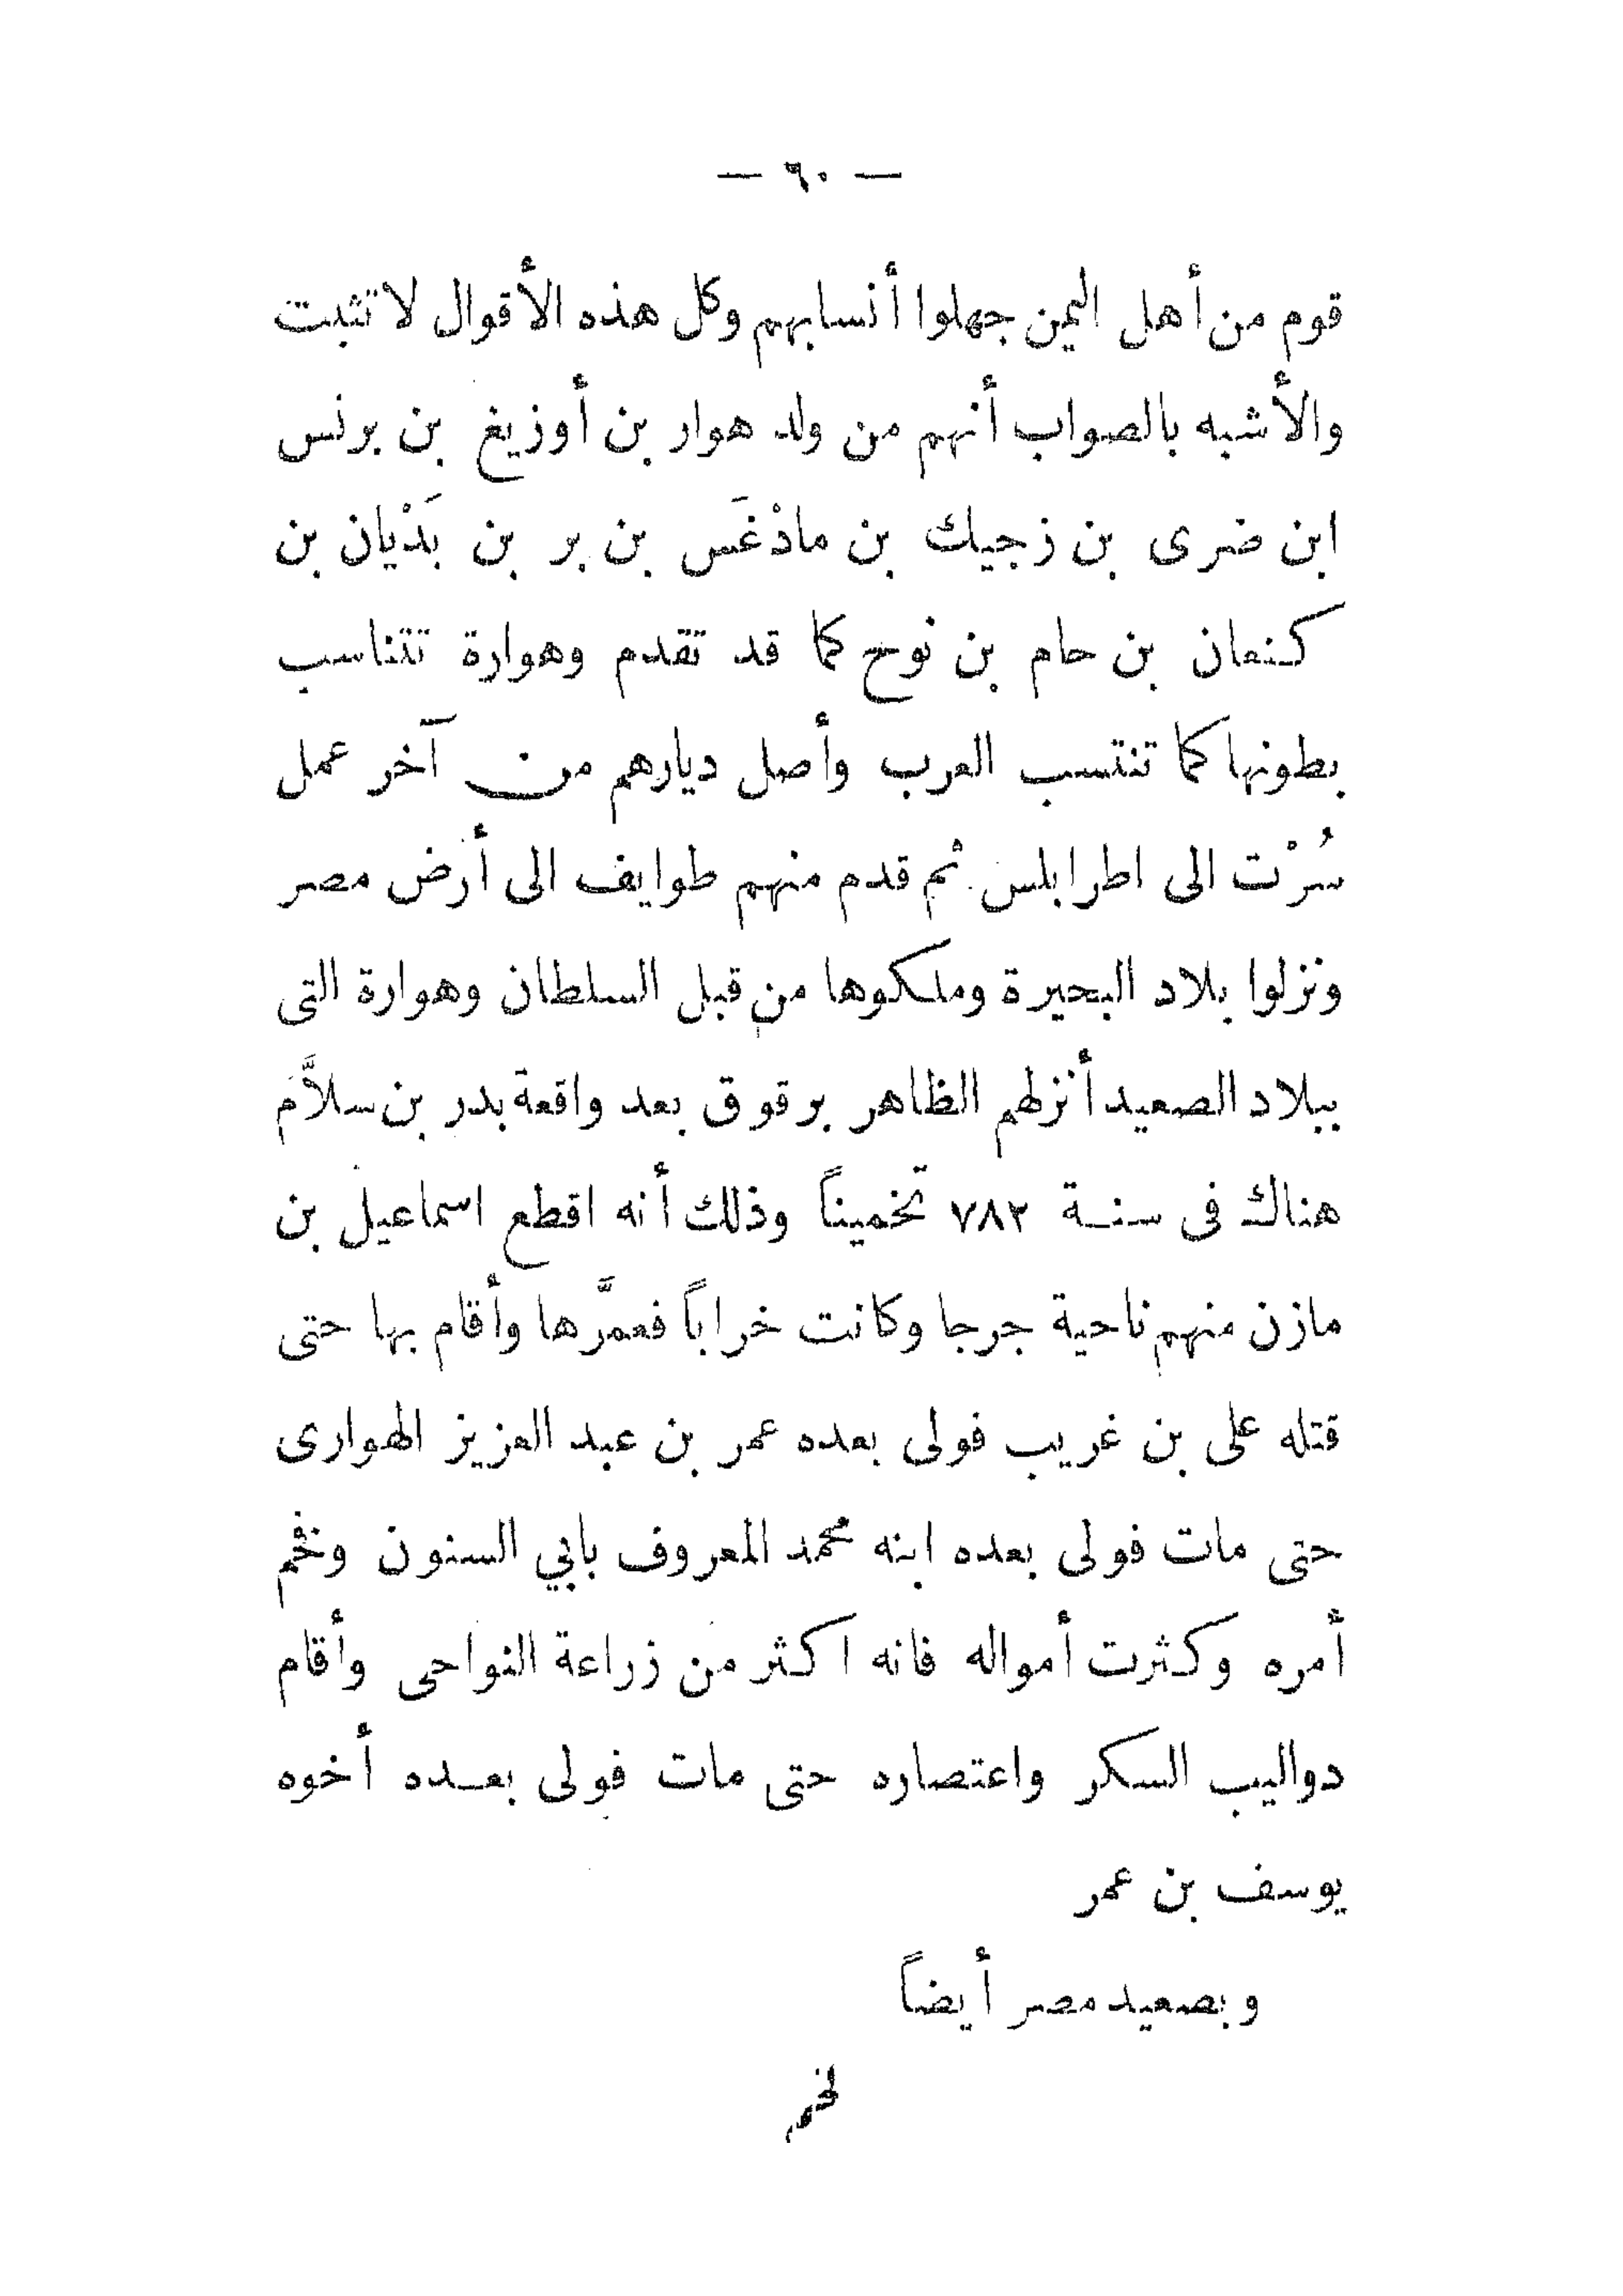 — ٦٠ —
قوم من أهل اليمن جهلوا أنسابهم وكل هذه الأقوال لا تثبت
والأشبه بالصواب أنهم من ولد هوار بن أوزيغ بن برنس
ابن ضرى بن زجيك بن مادْغَس بن بر بن بَدْيان بن
كنعان بن حام بن نوح كما قد تقدم وهوارة تتناسب
بطونها كما تنتسب العرب وأصل ديارهم من آخر عمل
سُرْت الى اطرابلس ثم قدم منهم طوايف الى أرض مصر
ونزلوا بلاد البحيرة وملكوها من قبل السلطان وهوارة التى
ببلاد الصعيد أنزلهم الظاهر برقوق بعد واقعة بدر بن سلاَّم
هناك فى سنة ٧٨٢ تخميناً وذلك أنه اقطع اسماعيل بن
مازن منهم ناحية جرجا وكانت خراباً فعمَّرها وأقام بها حتى
قتله على بن غريب فولى بعده عمر بن عبد العزيز الهوارى
حتى مات فولى بعده ابنه محمد المعروف بابي السنون وفخم
أمره وكثرت أمواله فانه اكثر من زراعة النواحى وأقام
دواليب السكر واعتصاره حتى مات فولى بعده أخوه
يوسف بن عمر
وبصعيد مصر أيضاً
لخم